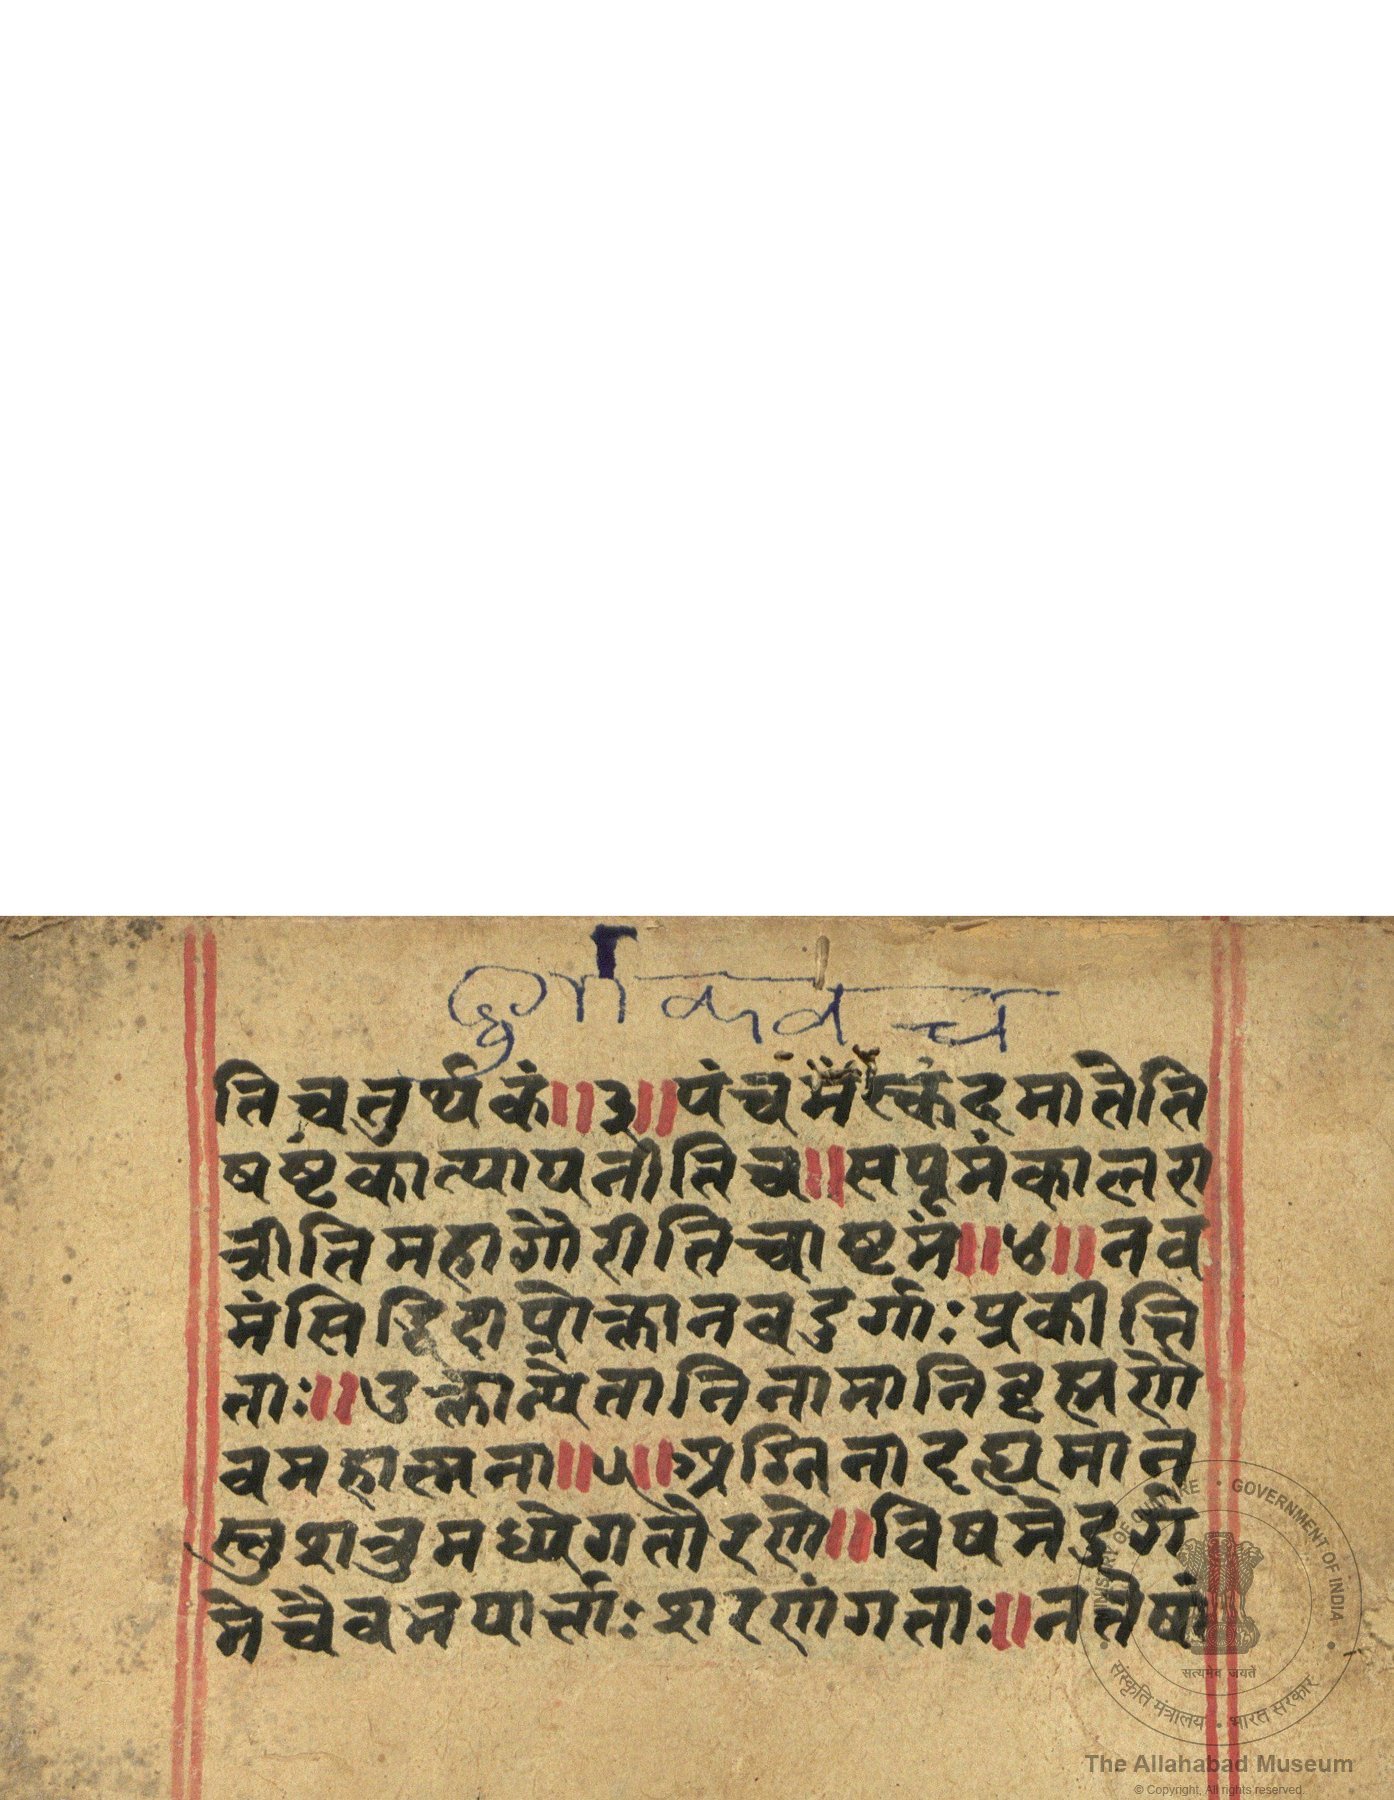 दुर्गा कवच
ति चतुर्थकं॥३॥पंचमं स्कंदमातेति
षष्टं कात्यायनीति च॥सप्तमं कालरा
त्रीति महागौरीति चाष्टमं॥४॥नव
मं सिद्धिदा प्रोक्ता नवदुर्गाः प्रकीर्त्ति
ताः॥उक्तान्येतानि नामानि ब्रह्मणै
व महात्मना॥५॥अग्निना दह्यमान
स्तु शत्रुमध्ये गतो रणे॥विषमे दुर्ग
मे चैव भयार्त्ताः शरणं गताः॥न तेषां
MINISTRY OF CULTURE • GOVERNMENT OF INDIA
सत्यमेव जयते
संस्कृति मंत्रालय • भारत सरकार
The Allahabad Museum
© Copyright, All rights reserved.